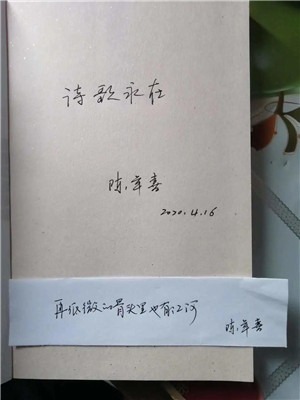 诗歌永在
陈年喜
2020.4.16
再低微的骨头里也有江河
陈年喜